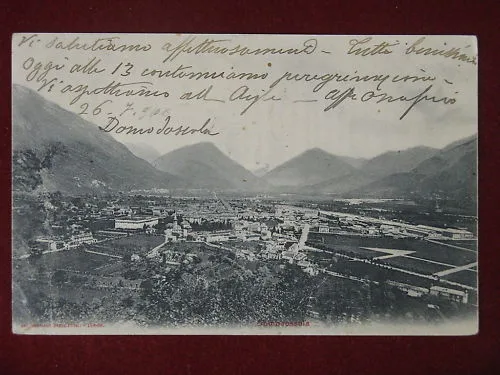 Vi salutiamo affettuosamend - Tutti benissimo
Oggi alle 13 continuiamo peregrinazione -
Vi aspettiamo al
26-7-900
Domodossola
Domodossola